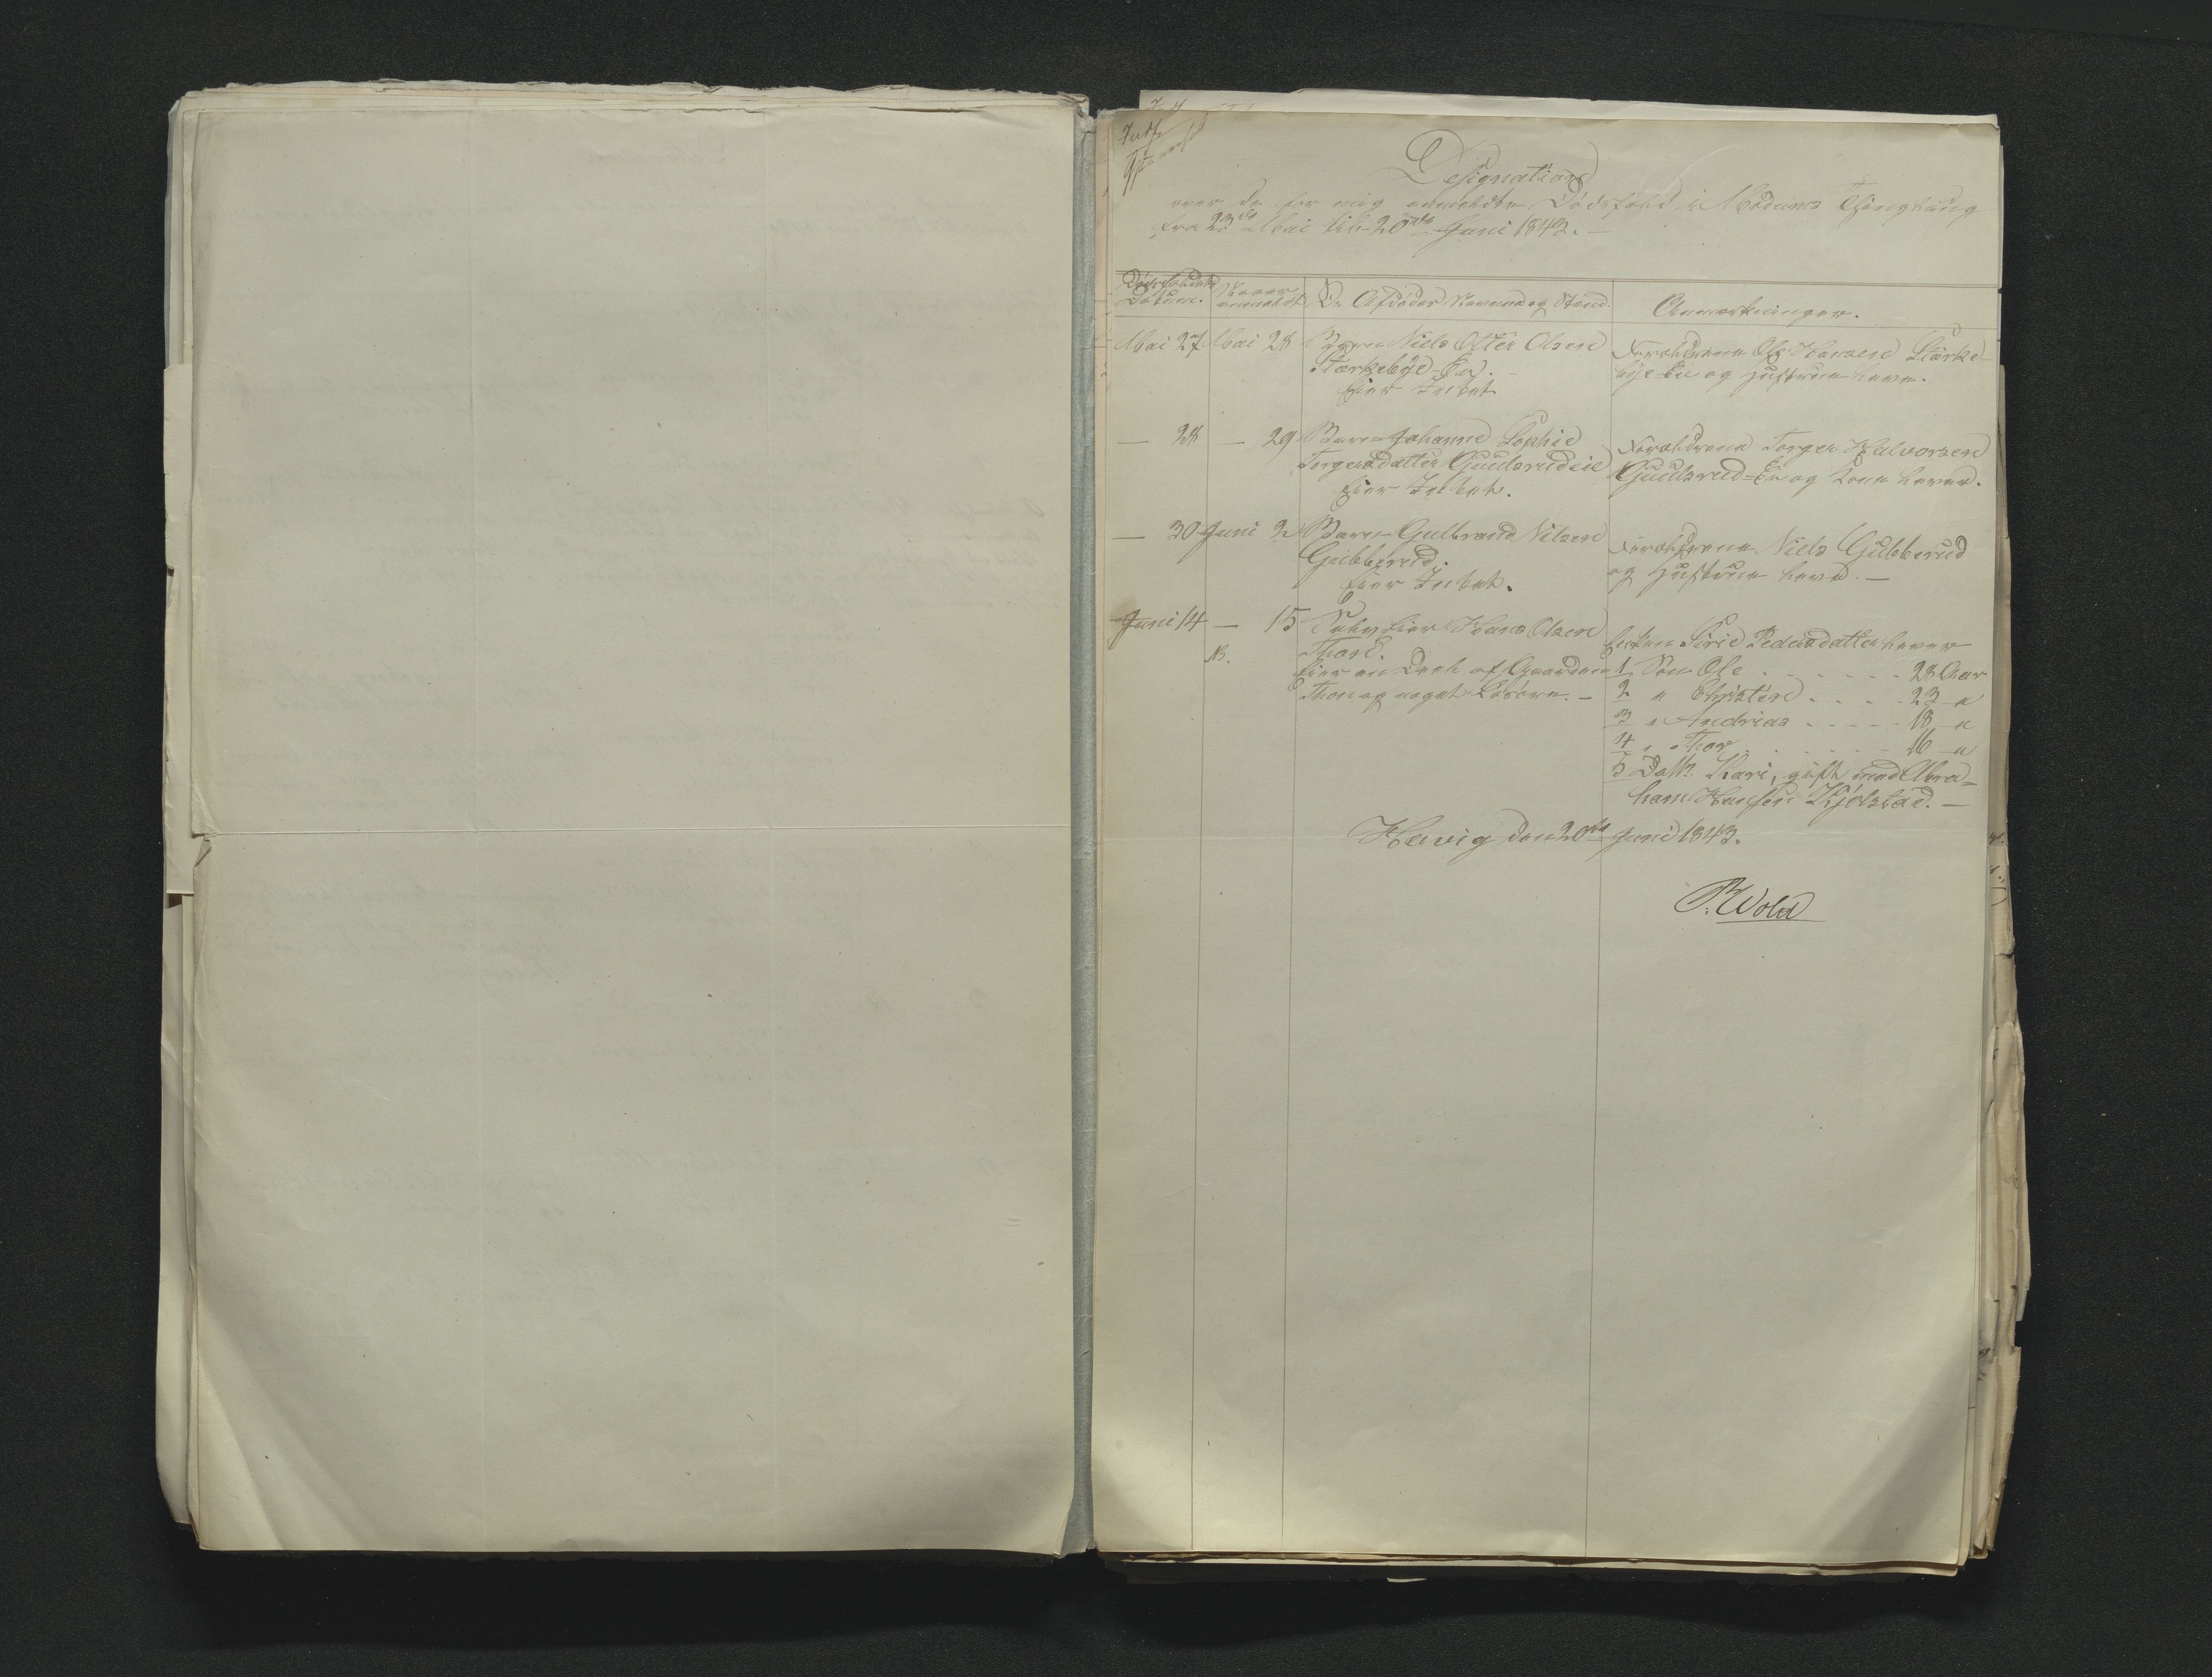 Designation
over de for mig anmeldte Dødsfald i Modums Thinglaug
fra 23de Mai til 20de Juni 1843. —
Dødsfaldets
Datum.
Naar
anmeldt
De Afdødes Navne og Stand.
Anmærkninger.
Mai 27 Mai 28 Barn Niels Otter Olsen
Stærkebye-Ei.
Eier Intet
Forældrene Ole Hansen Stærke-
bye-Ei og Hustrue leve.
— 28 — 29 Barn Johanne Sophie
Torgersdatter Guulsrudeie
Eier Intet.
Forældrene Torger Halvorsen
Guulsrud-Ei og Kone lever.
— 30 Juni 2 Barn Gulbrand Nilsen
Gubberud.
Eier Intet.
Forældrene Niels Gubberud
og Hustrue leve. —
Juni 14 — 15 Selveier Hans Olsen
NB.
Thon.
Eier en Deel af Gaarden
Thon og noget Løsøre. —
Enken Sirie Pedersdatter lever
1 Søn Ole . . . . . . . 28 Aar
2 " Christen . . . . 23 "
3 " Andreas . . . . . 18 "
4 " Thor . . . . . . 16 "
5 Datt. Kari, gift med Abra-
ham Hansen Kjølstad. —
Hævig den 20de Juni 1843.
P. Wold